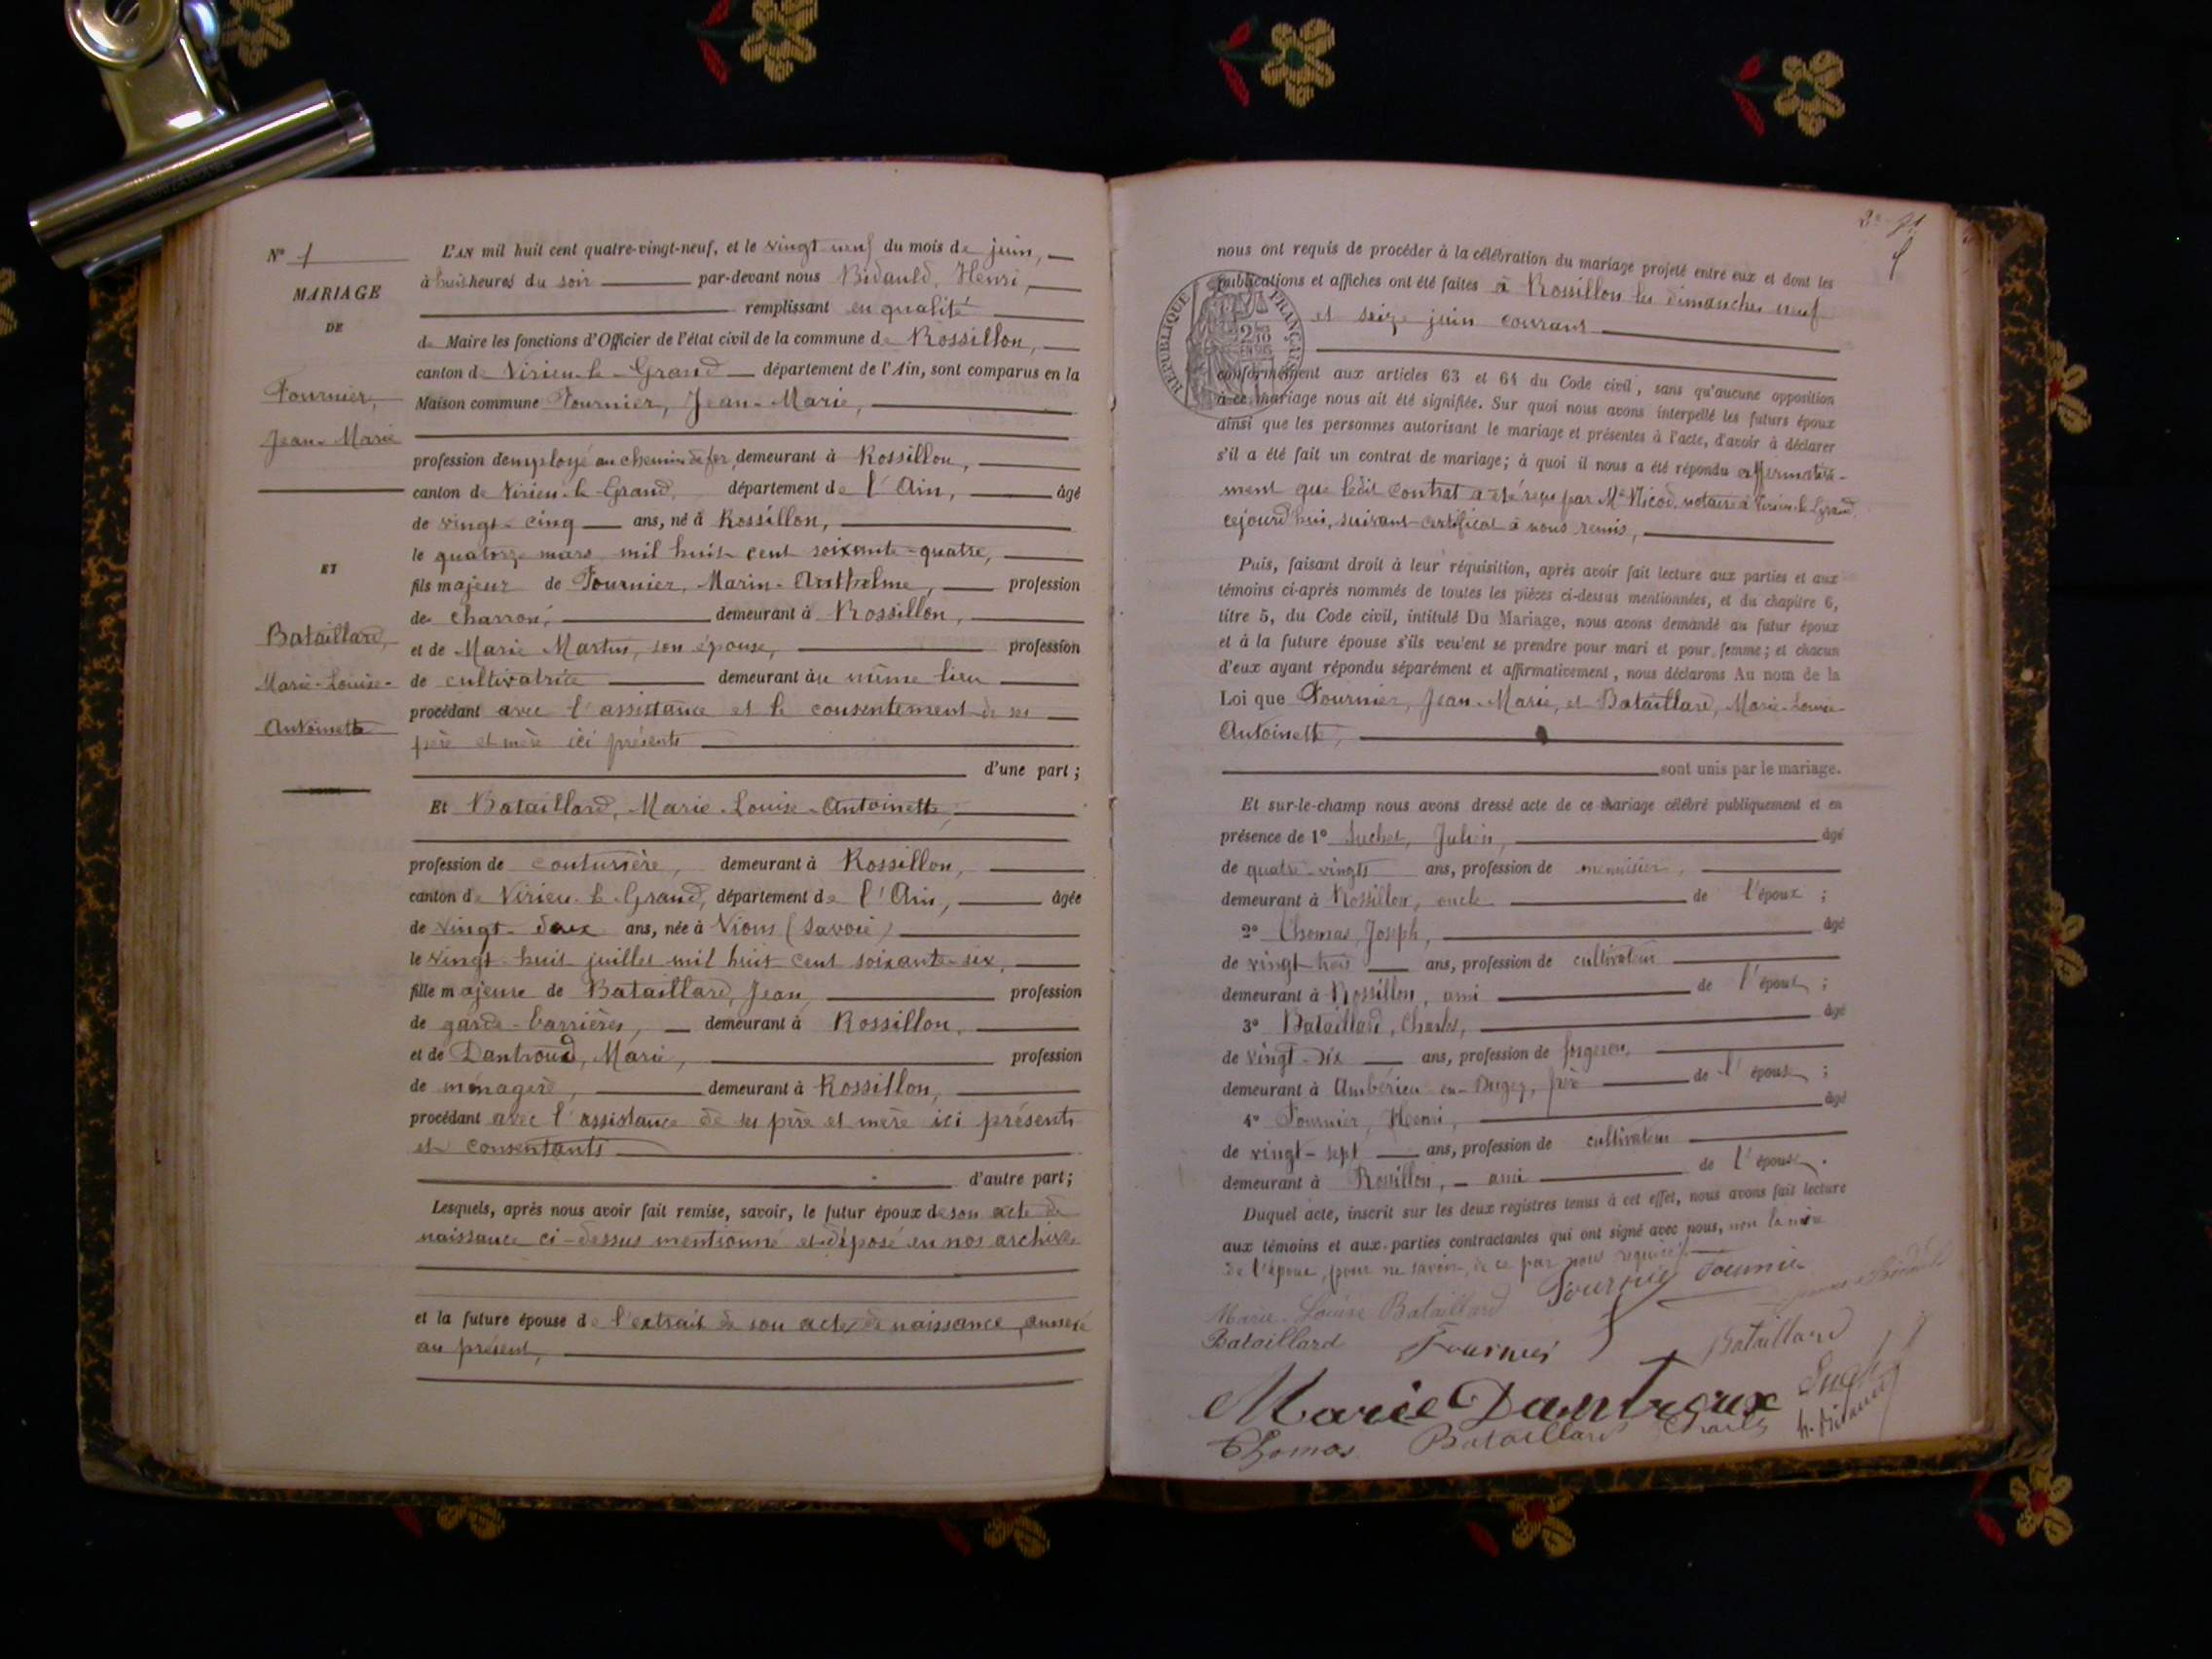 N° 1
MARIAGE
DE
Fournier,
Jean-Marie
ET
Bataillard,
Marie-Louise-
Antoinette
L'AN mil huit cent quatre-vingt-neuf, et le vingt neuf du mois de juin,
à huit heures du soir par-devant nous Bidauld, Henri,
remplissant en qualité
de Maire les fonctions d'Officier de l'état civil de la commune de Rossillon,
canton de Virieu-le-Grand département de l'Ain, sont comparus en la
Maison commune Fournier, Jean-Marie,
profession d'employé au chemin de fer, demeurant à Rossillon,
canton de Virieu-le-Grand, département de l'Ain, âgé
de vingt-cinq ans, né à Rossillon,
le quatorze mars mil huit cent soixante-quatre,
fils majeur de Fournier, Marin-Anthelme, profession
de charron, demeurant à Rossillon,
et de Marie Martin, son épouse, profession
de cultivatrice demeurant au même lieu
procédant avec l'assistance et le consentement de ses
père et mère ici présents
d'une part ;
Et Bataillard, Marie-Louise-Antoinette,
profession de couturière, demeurant à Rossillon,
canton de Virieu-le-Grand, département de l'Ain, âgée
de vingt-deux ans, née à Vions (Savoie)
le vingt-huit juillet mil huit cent soixante-six,
fille majeure de Bataillard, Jean, profession
de garde-barrières, demeurant à Rossillon,
et de Dantroud, Marie, profession
de ménagère, demeurant à Rossillon,
procédant avec l'assistance de ses père et mère ici présents
et consentants
d'autre part ;
Lesquels, après nous avoir fait remise, savoir, le futur époux de son acte de
naissance ci-dessus mentionné et déposé en nos archives
et la future épouse de l'extrait de son acte de naissance, annexé
au présent,
2e
nous ont requis de procéder à la célébration du mariage projeté entre eux et dont les
publications et affiches ont été faites à Rossillon les dimanches neuf
et seize juin courant
RÉPUBLIQUE FRANÇAISE
conformément aux articles 63 et 64 du Code civil, sans qu'aucune opposition
à ce mariage nous ait été signifiée. Sur quoi nous avons interpellé les futurs époux
ainsi que les personnes autorisant le mariage et présentes à l'acte, d'avoir à déclarer
s'il a été fait un contrat de mariage ; à quoi il nous a été répondu affirmative-
ment que ledit contrat a été reçu par Me Nicod, notaire à Virieu-le-Grand
cejourd'hui, suivant certificat à nous remis,
Puis, faisant droit à leur réquisition, après avoir fait lecture aux parties et aux
témoins ci-après nommés de toutes les pièces ci-dessus mentionnées, et du chapitre 6,
titre 5, du Code civil, intitulé Du Mariage, nous avons demandé au futur époux
et à la future épouse s'ils veulent se prendre pour mari et pour femme ; et chacun
d'eux ayant répondu séparément et affirmativement, nous déclarons Au nom de la
Loi que Fournier, Jean-Marie, et Bataillard, Marie-Louise-
Antoinette,
sont unis par le mariage.
Et sur-le-champ nous avons dressé acte de ce mariage célébré publiquement et en
présence de 1° Suchet, Julien, âgé
de quatre-vingts ans, profession de menuisier,
demeurant à Rossillon, oncle de l'époux ;
2° Thomas, Joseph, âgé
de vingt-trois ans, profession de cultivateur
demeurant à Rossillon, ami de l'époux ;
3° Bataillard, Charles, âgé
de vingt-dix ans, profession de forgeron,
demeurant à Ambérieu-en-Bugey, de l'épouse ;
4° Fournier, Henri, âgé
de vingt-sept ans, profession de cultivateur
demeurant à Rossillon, ami de l'épouse.
Duquel acte, inscrit sur les deux registres tenus à cet effet, nous avons fait lecture
aux témoins et aux parties contractantes qui ont signé avec nous, non la mère
de l'époux, pour ne savoir, de ce par nous requise.
Fournier Fournier
Marie-Louise Bataillard
Bataillard Fournier Bataillard
Marie Dantroux
Thomas Bataillard Charles H. Bidauld